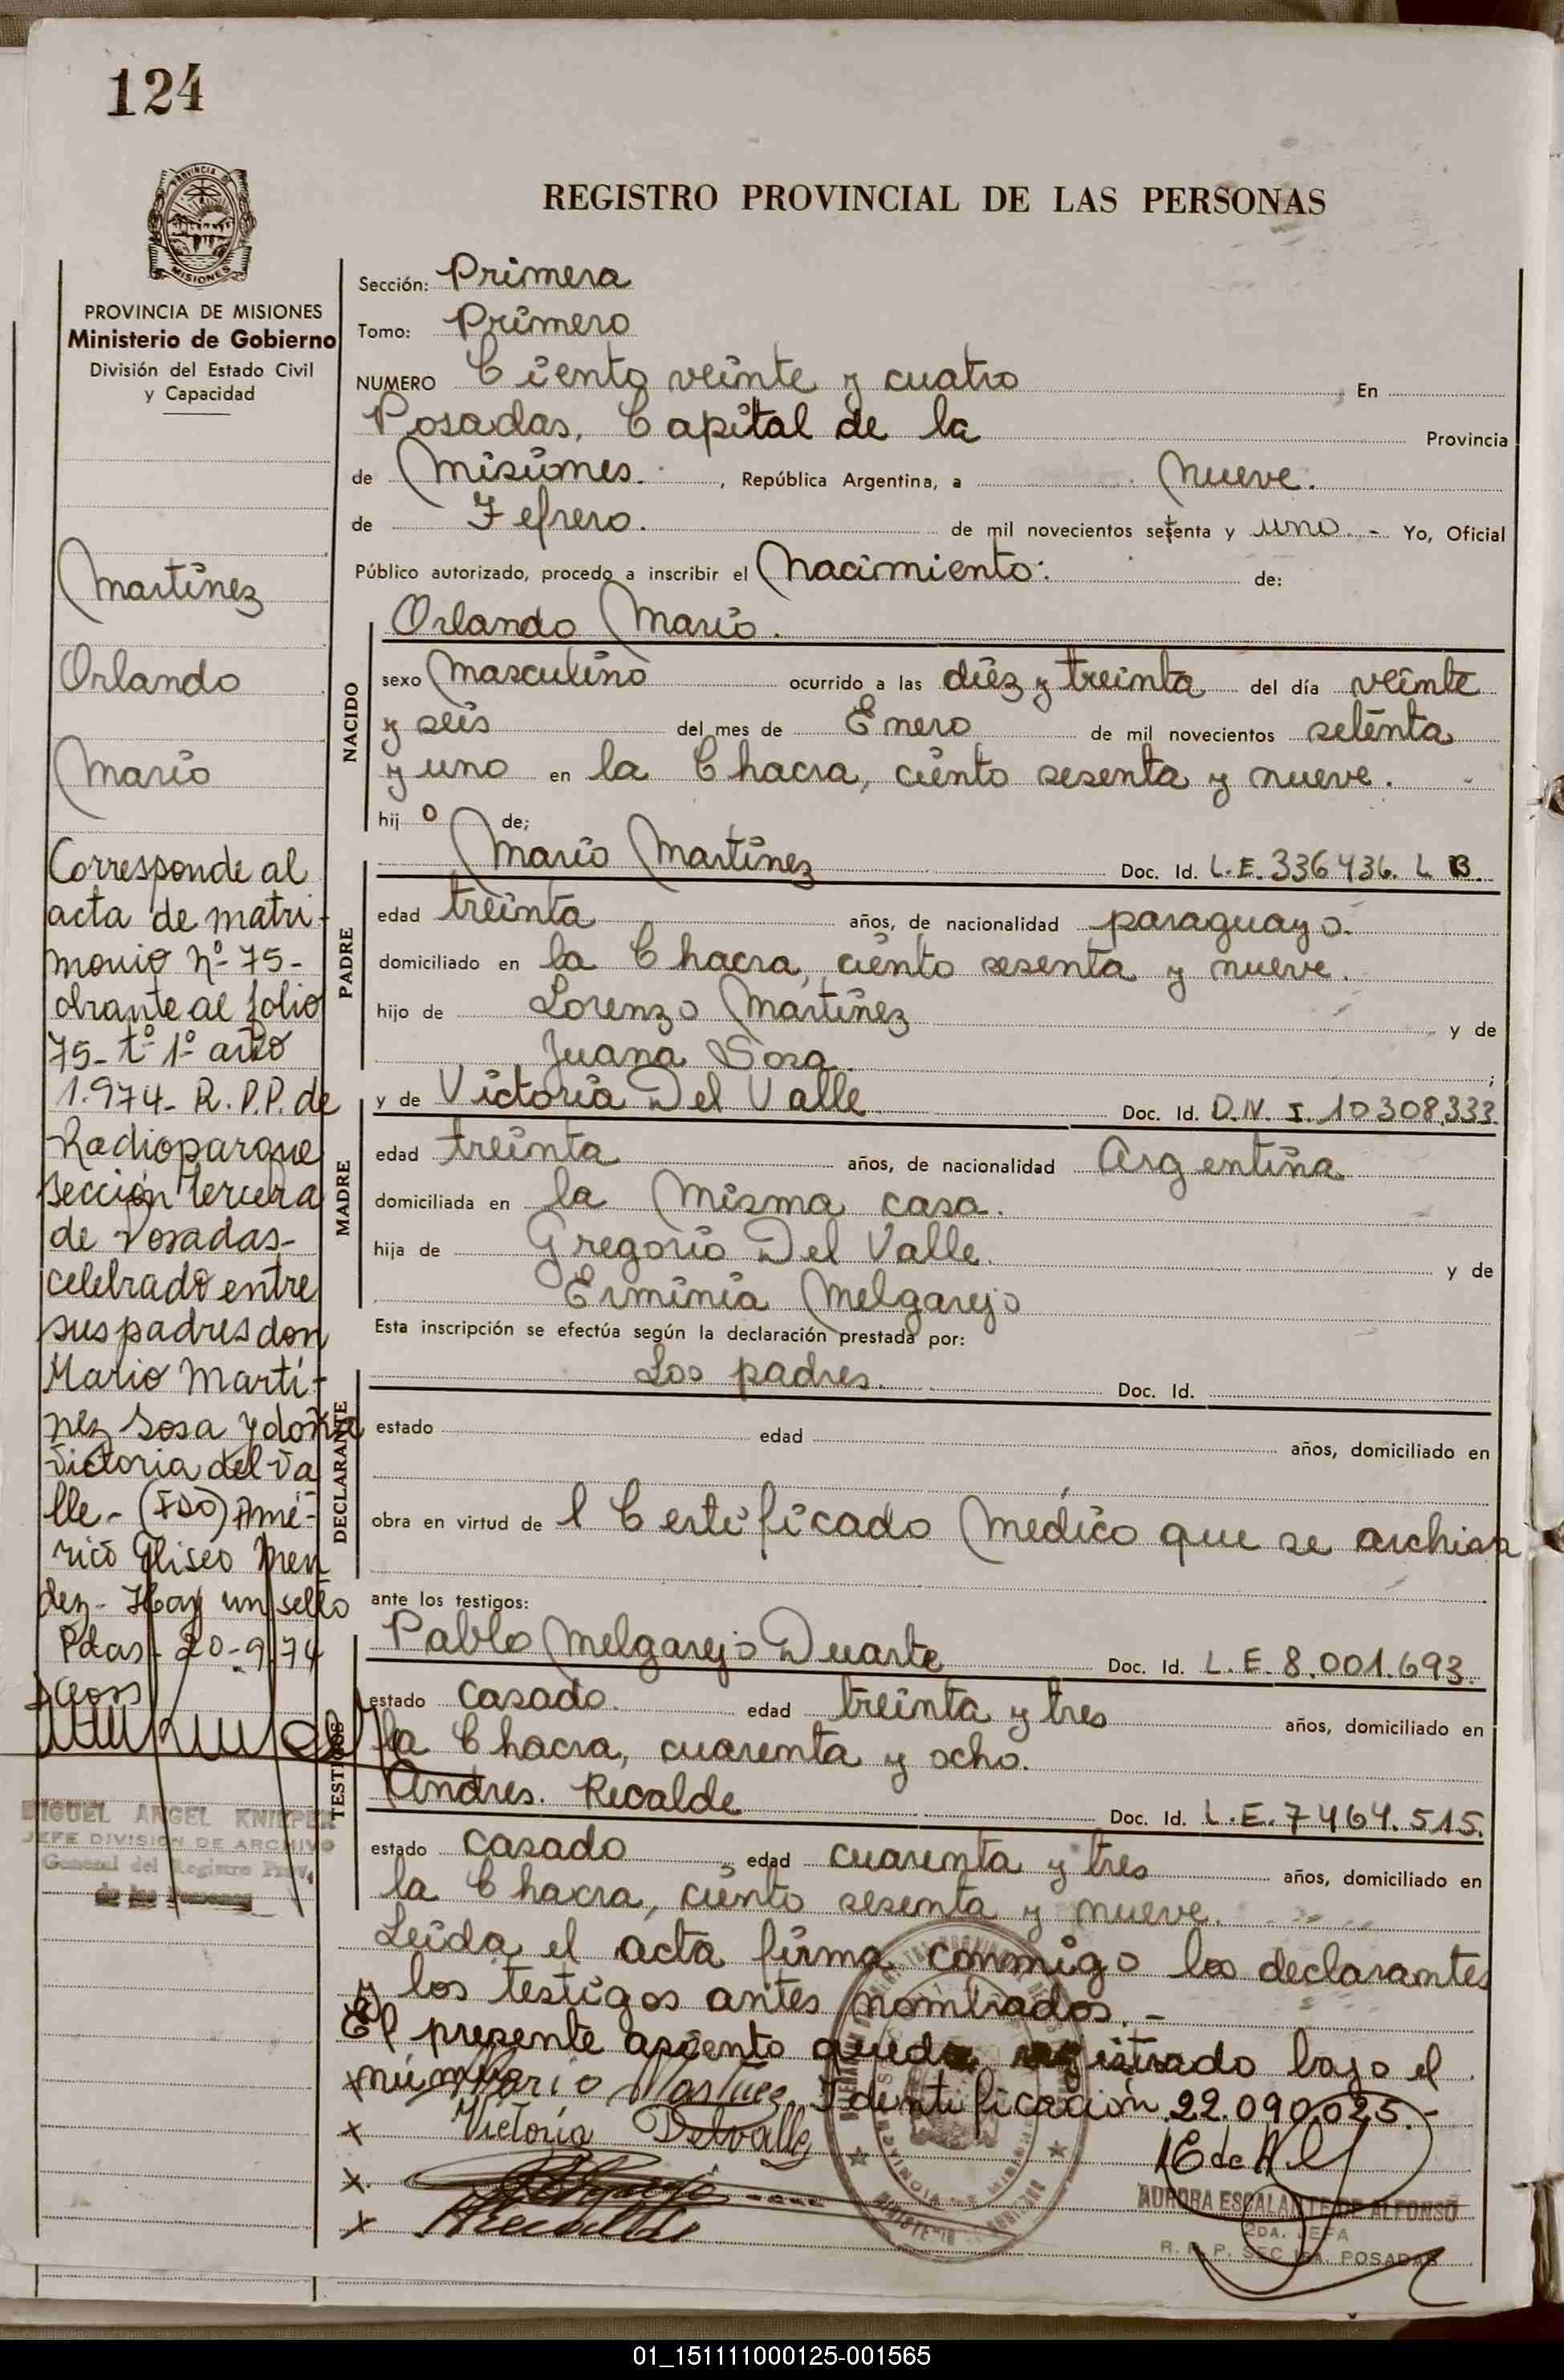 124
PROVINCIA DE
MISIONES
PROVINCIA DE MISIONES
Ministerio de Gobierno
División del Estado Civil
y Capacidad
Martínez
Orlando
Mario
Corresponde al
acta de matri-
monio Nº 75-
obrante al folio
75- tº 1º año
1.974- R.P.P. de
Radioparque
Sección Tercera
de Posadas-
celebrado entre
sus padres don
Mario Martí-
nez Sosa y doña
Victoria del Va
lle- (FDO) Amé-
rico Eliseo Men
dez- Hay un sello
Pdas- 20-9-74
MIGUEL ANGEL KNIEPER
JEFE DIVISION DE ARCHIVO
General del Registro Prov.
de las Personas
REGISTRO PROVINCIAL DE LAS PERSONAS
Sección: Primera
Tomo: Primero
NUMERO Ciento veinte y cuatro, En
Posadas, Capital de la Provincia
de Misiones., República Argentina, a Nueve.
de Febrero. de mil novecientos setenta y uno.- Yo, Oficial
Público autorizado, procedo a inscribir el Nacimiento: de:
Orlando Mario.
NACIDO
sexo Masculino ocurrido a las diéz y treinta del día veinte
y seis del mes de Enero de mil novecientos setenta
y uno en la Chacra, ciento sesenta y nueve.
hij o de;
Mario Martínez Doc. Id. L.E. 336436. L B.
PADRE
edad treinta años, de nacionalidad paraguayo.
domiciliado en la Chacra, ciento sesenta y nueve.
hijo de Lorenzo Martínez y de
Juana Sosa.;
y de Victoria Del Valle Doc. Id. D.N.I. 10308,333.
MADRE
edad treinta años, de nacionalidad Argentina
domiciliada en la Misma casa.
hija de Gregorio Del Valle. y de
Erminia Melgarejo
Esta inscripción se efectúa según la declaración prestada por:
Los padres. Doc. Id.
DECLARANTE
estado edad años, domiciliado en
obra en virtud de l Certificado Médico que se archiva
ante los testigos:
Pablo Melgarejo Duarte Doc. Id. L.E. 8.001.693.
TESTIGOS
estado casado. edad treinta y tres años, domiciliado en
la Chacra, cuarenta y ocho.
Andres. Recalde Doc. Id. L.E. 7464.515.
estado casado, edad cuarenta y tres años, domiciliado en
la Chacra, ciento sesenta y nueve.
Leída el acta firma conmigo los declarantes
y los testigos antes nombrados.-
El presente asiento queda registrado bajo el
número Identificación 22.090.025.-
x Mario Martinez
x Victoria Delvalle
x
x
AURORA ESCALANTE DE ALFONSO
2DA. JEFA
R. P. P. SEC 1RA. POSADAS
01_151111000125-001565